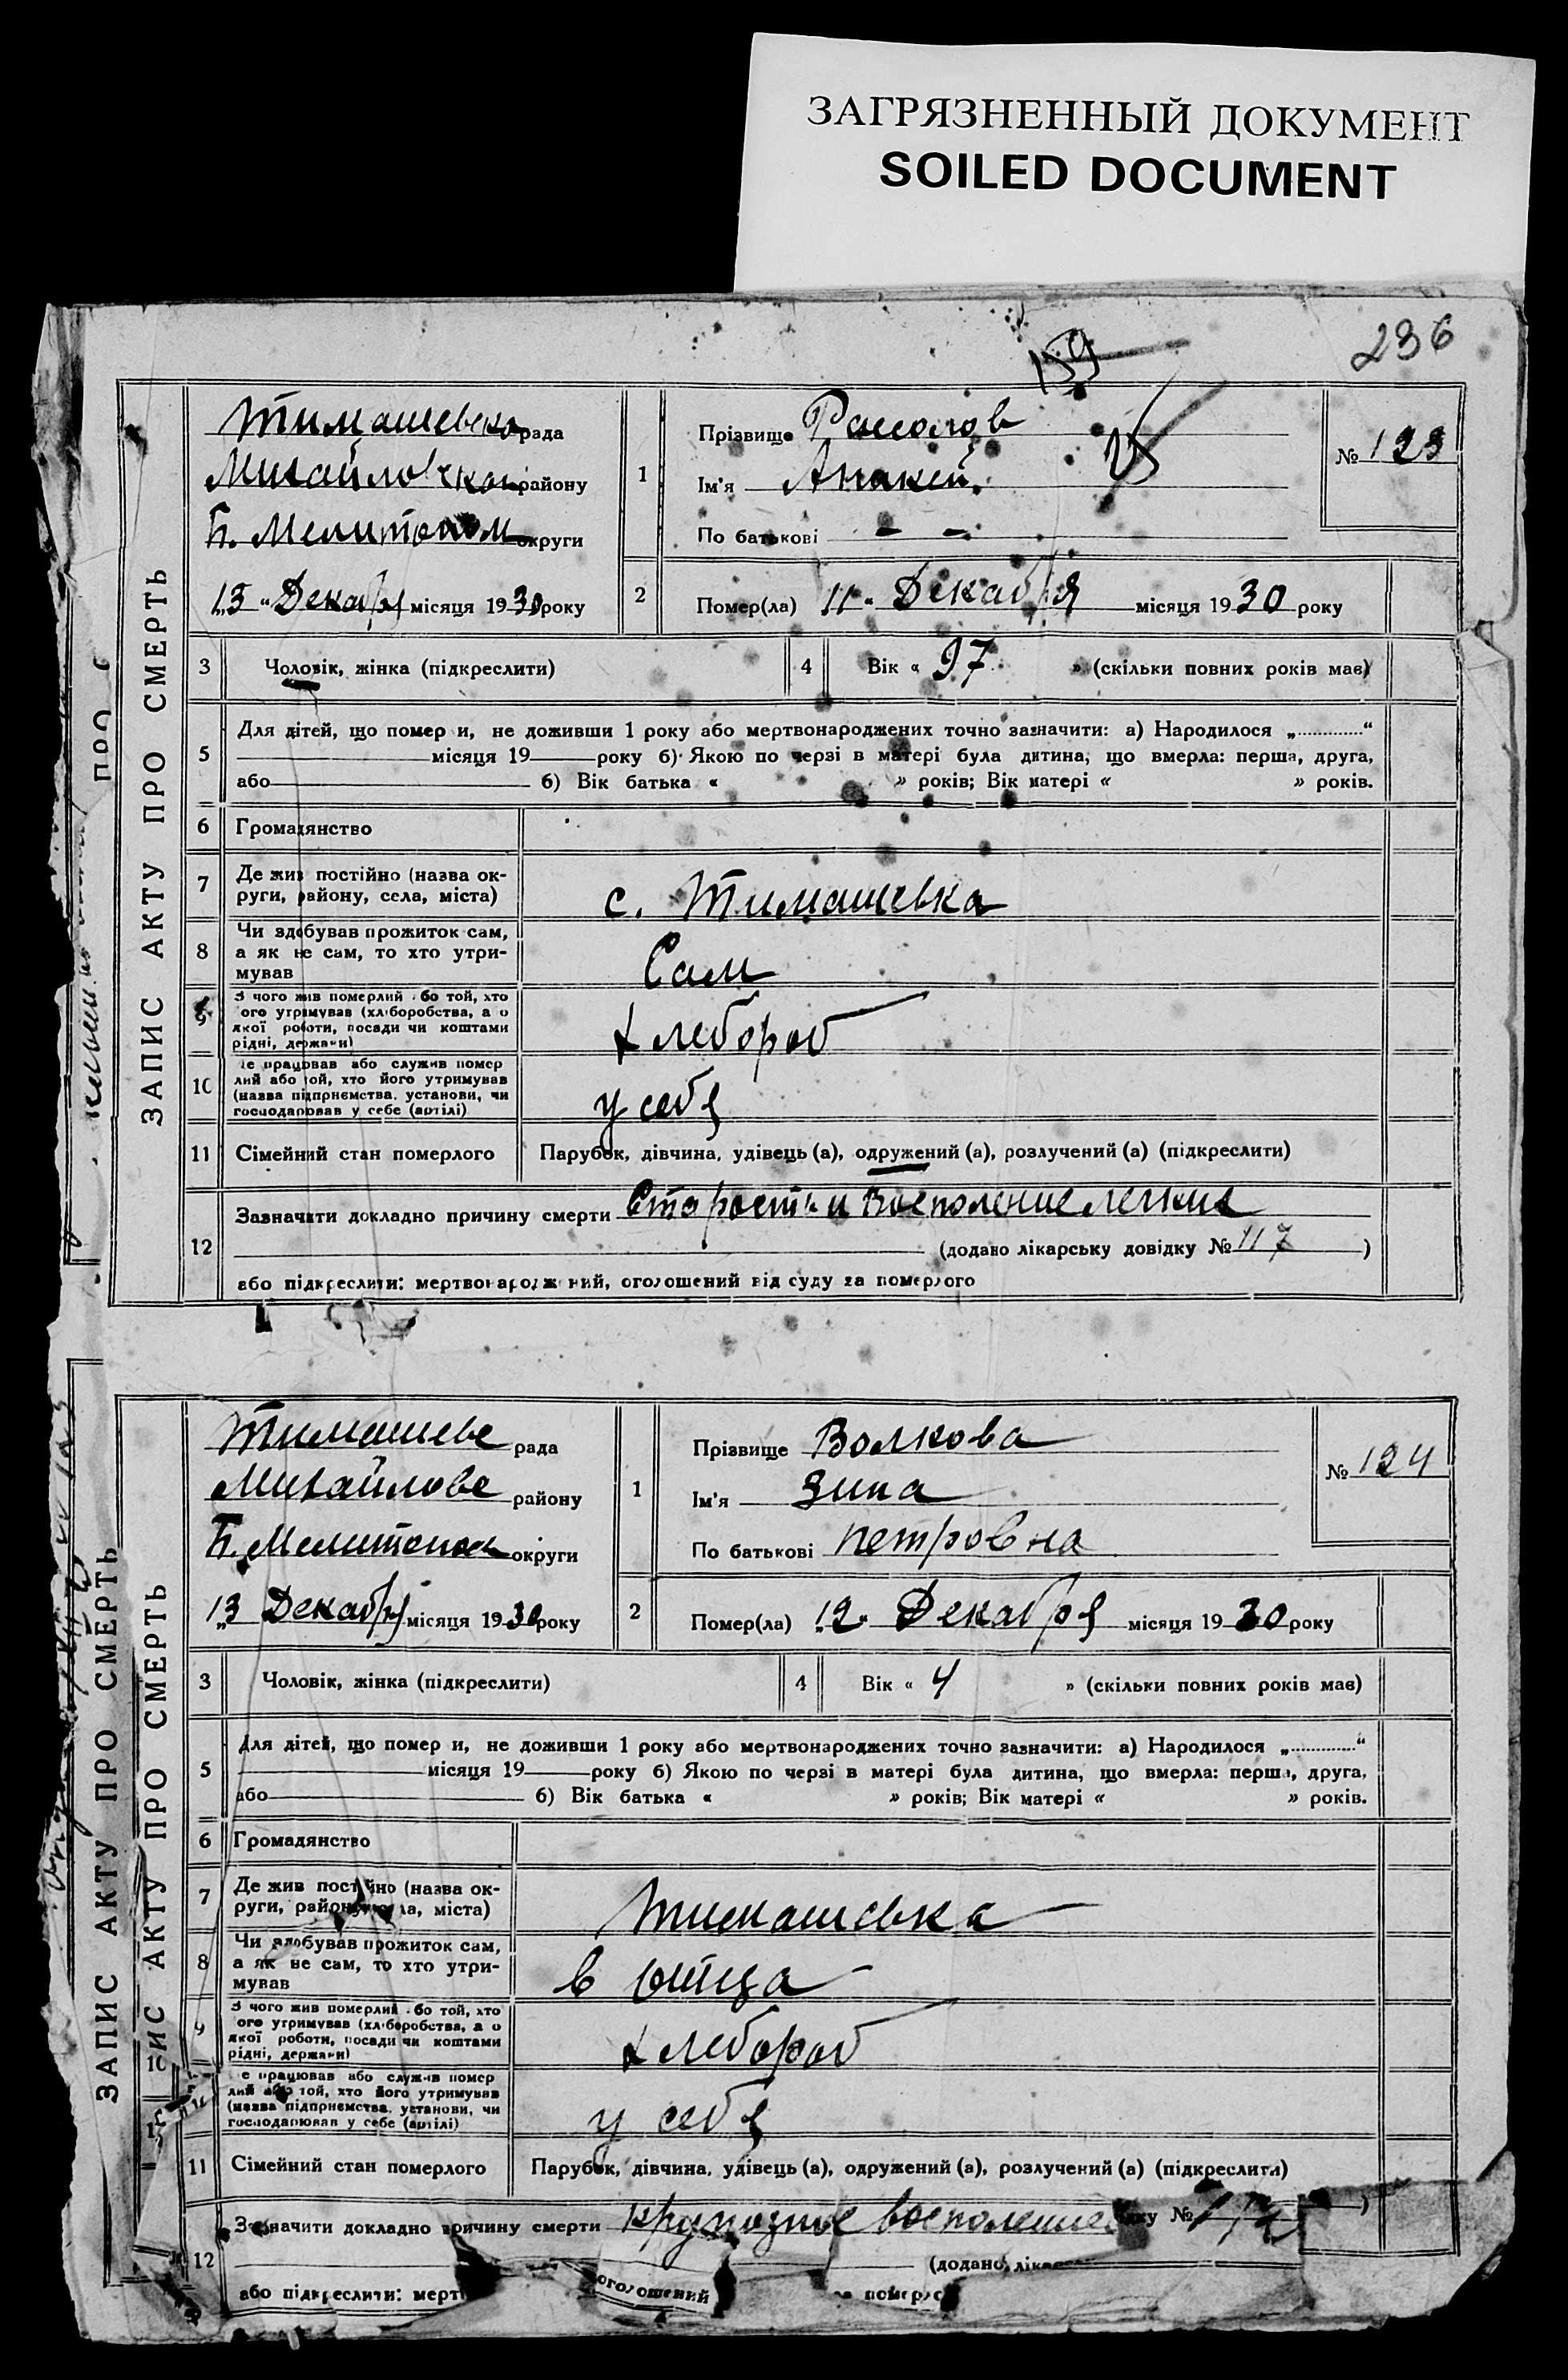 ЗАГРЯЗНЕННЫЙ ДОКУМЕНТ
SOILED DOCUMENT
236
159
ЗАПИС АКТУ ПРО СМЕРТЬ
Тимашевська рада
Михайловской району
Б. Мелитопол округи
"13" Декабря місяця 1930 року
1 Прізвище
Ім'я
По батькові – –
№ 123
2 Помер(ла) 11 Декабря місяця 1930 року
3 Чоловік, жінка (підкреслити)
4 Вік « 97 » (скільки повних років має)
5 Для дітей, що помер и, не доживши 1 року або мертвонароджених точно зазначити: а) Народилося „............“
місяця 19 року б) Якою по черзі в матері була дитина, що вмерла: перша, друга,
або б) Вік батька « » років; Вік матері « » років.
6 Громадянство
7 Де жив постійно (назва ок-
руги, району, села, міста)
с. Тимашевка
8 Чи здобував прожиток сам,
а як не сам, то хто утри-
мував
Сам
9 З чого жив померлий або той, хто
ого утримував (хліборобства, а о
якої роботи, посади чи коштами
рідні, держави)
хлебороб
10 е працював або служив помер
лий або той, хто його утримував
(назва підприємства, установи, чи
господарював у себе (артілі)
у себя
11 Сімейний стан померлого Парубок, дівчина, удівець (а), одружений (а), розлучений (а) (підкреслити)
12 Зазначити докладно причину смерти Старость и Восполение легких
(додано лікарську довідку № 117 )
або підкреслити: мертвонароджений, оголошений від суду за померлого
ЗАПИС АКТУ ПРО СМЕРТЬ
Тимашевс рада
Михайловс району
Б. Мелитопол округи
"13 Декабря місяця 1930 року
1 Прізвище Волкова
Ім'я Зина
По батькові Петровна
№ 124
2 Помер(ла) "12" Декабря місяця 1930 року
3 Чоловік, жінка (підкреслити)
4 Вік « 4 » (скільки повних років має)
5 Для дітей, що помер и, не доживши 1 року або мертвонароджених точно зазначити: а) Народилося „............“
місяця 19 року б) Якою по черзі в матері була дитина, що вмерла: перша, друга,
або б) Вік батька « » років; Вік матері « » років.
6 Громадянство
7 Де жив постійно (назва ок-
руги, району, ла, міста)
Тимашевка
8 Чи здобував прожиток сам,
а як не сам, то хто утри-
мував
в отца
9 З чого жив померлий або той, хто
ого утримував (хліборобства, а о
якої роботи, посади чи коштами
рідні, держави)
хлебороб
е працював або служив помер
лий або той, хто його утримував
(назва підприємства, установи, чи
господарював у себе (артілі)
у себя
11 Сімейний стан померлого Парубок, дівчина, удівець (а), одружений (а), розлучений (а) (підкреслити)
12 Зазначити докладно причину смерти Крупозное восполение
дку №
(додано ліка
або підкреслити: мерт оголошений за померло
ЗАПИС АКТУ ПРО СМЕРТЬ